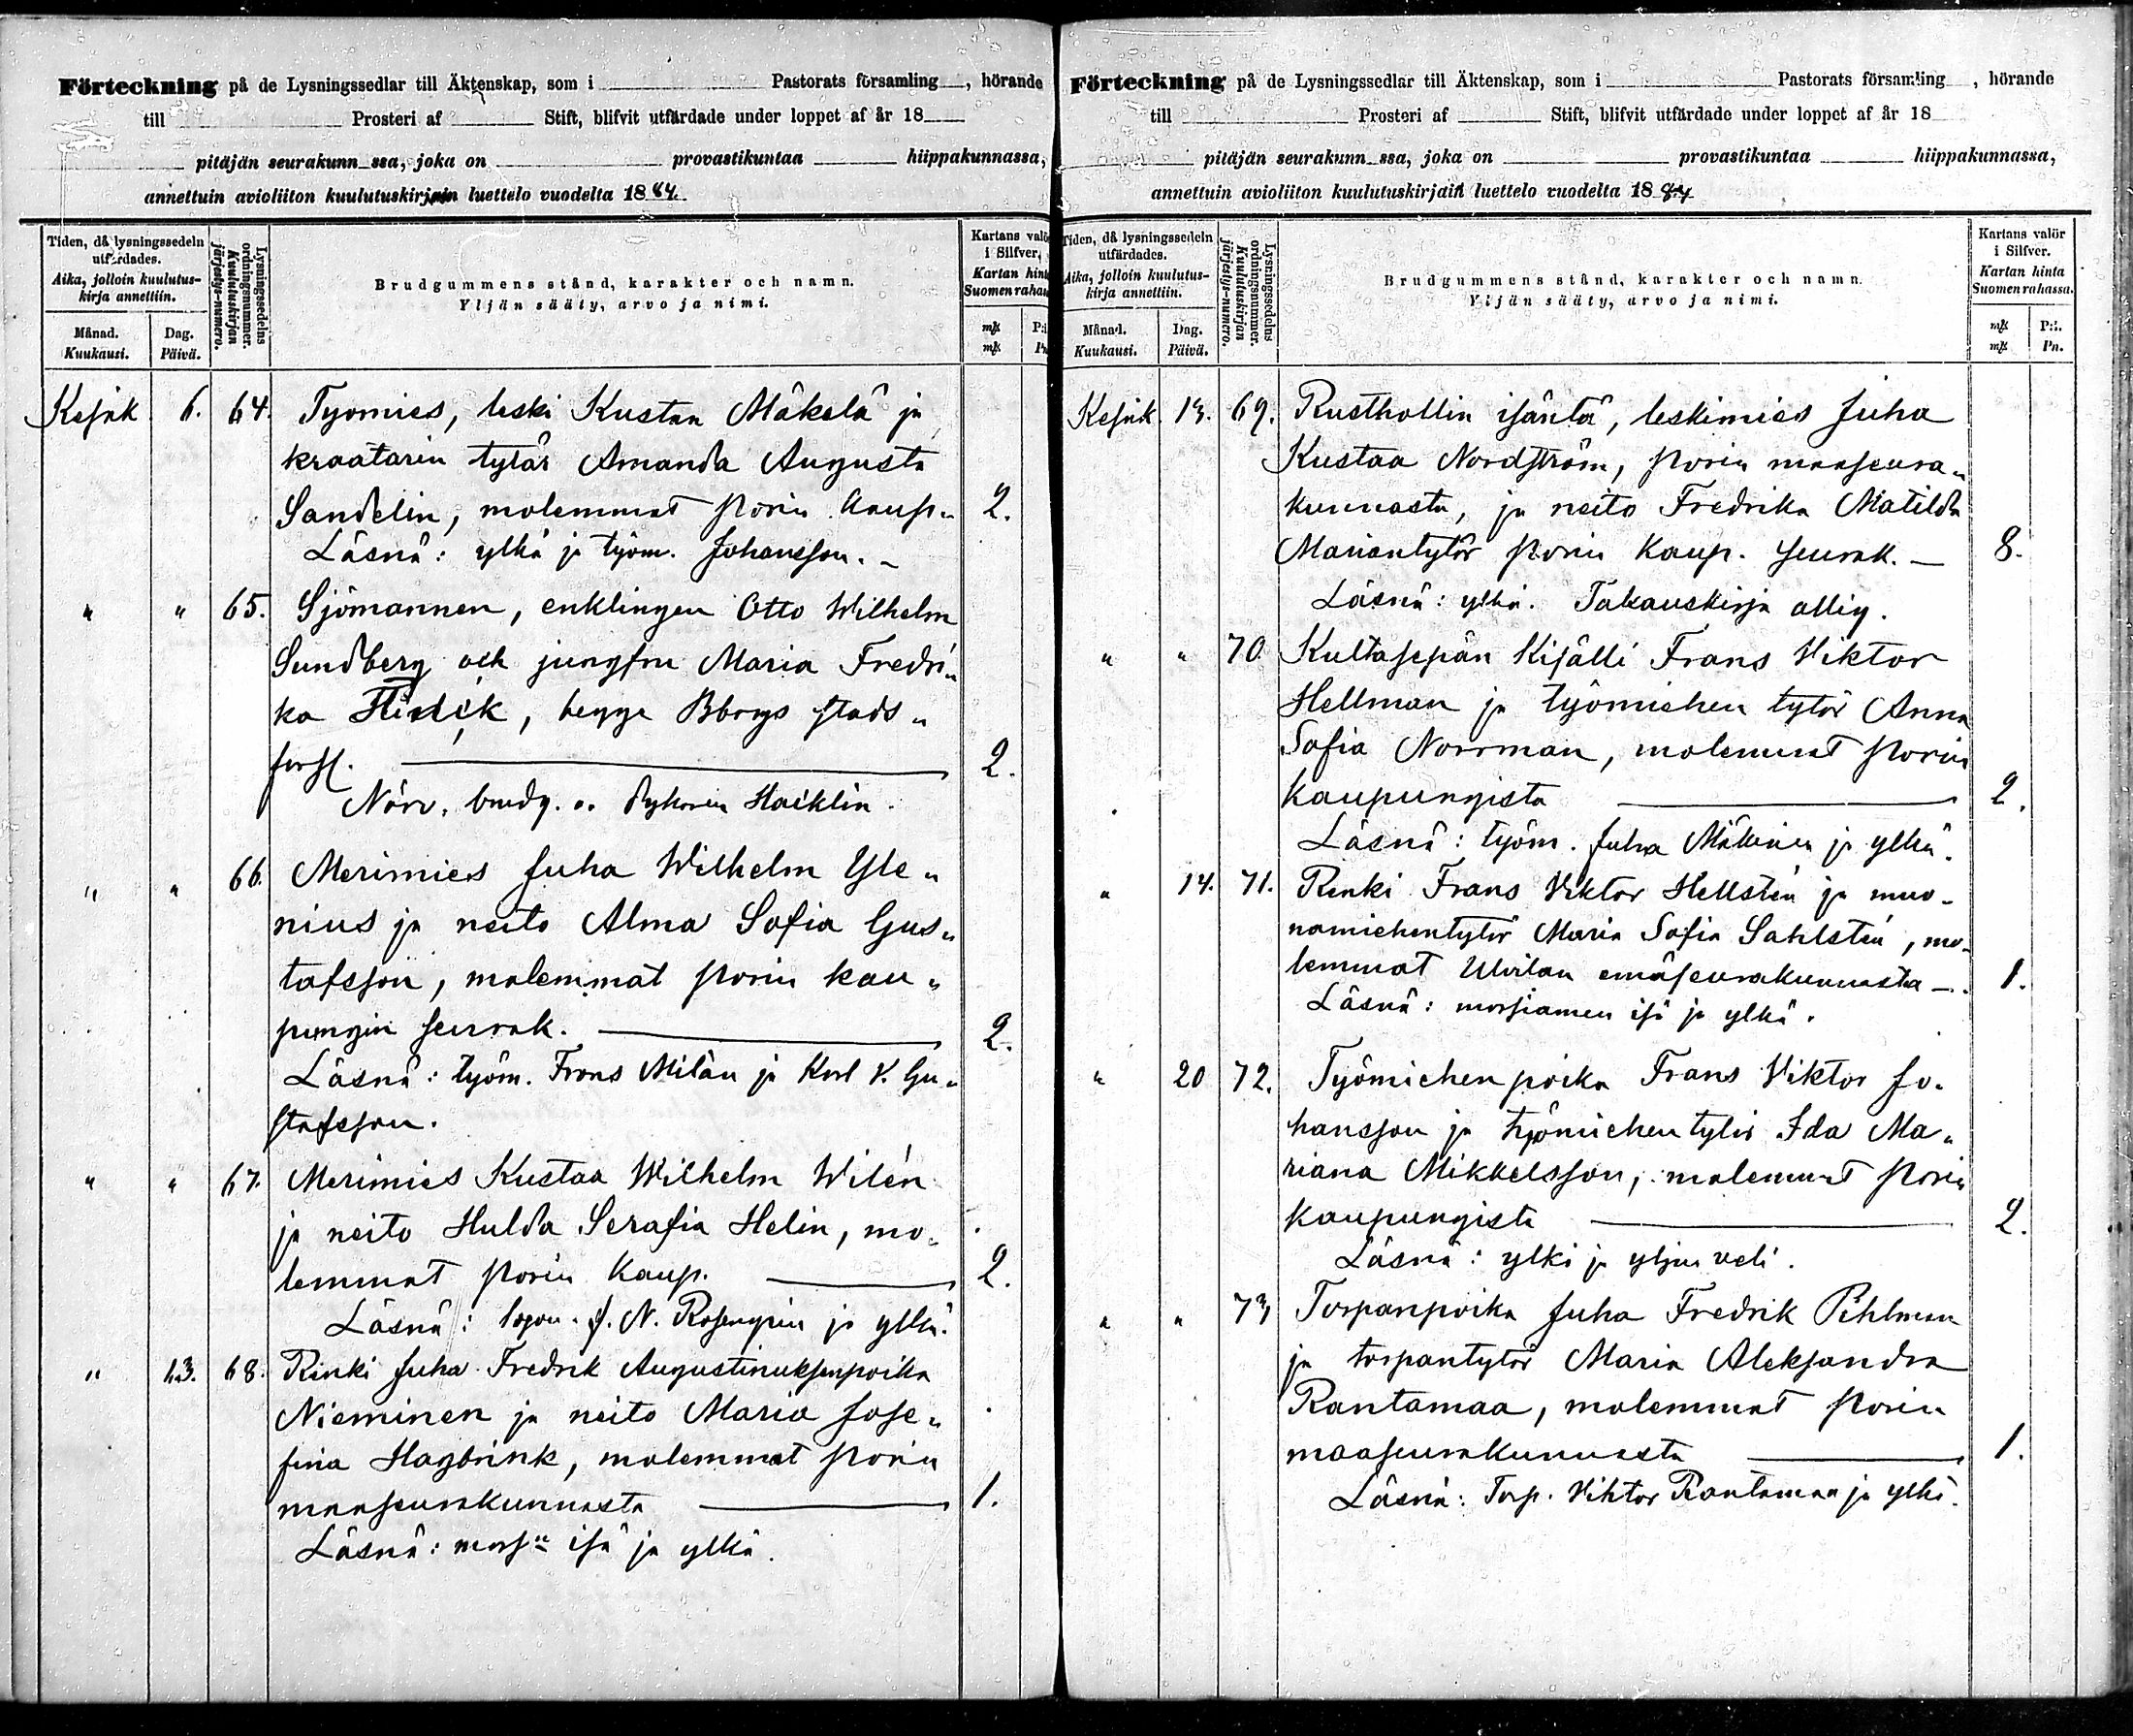 Förteckning på de Lysningssedlar till Äktenskap, som i Pastorats församling, hörande
till Prosteri af Stift, blifvit utfärdade under loppet af år 18
pitäjän seurakunn ssa, joka on provastikuntaa hiippakunnassa,
annettuin avioliiton kuulutuskirjain luettelo vuodelta 1884.
Tiden, då lysningssedeln utfärdades.
Aika, jolloin kuulutus-kirja annettiin.
Månad. Kuukausi.
Dag. Päivä.
Lysningssedelns ordningsnummer.
Kuulutuskirjan järjestys-numero.
Brudgummens stånd, karakter och namn.
Yljän sääty, arvo ja nimi.
Kartans valör i Silfver,
Kartan hinta Suomen rahassa
Kesäk 6. 64. Tyomies, leski Kustaa Mäkelä ja
kraatarin tytär Amanda Augusta
Sandelin, molemmat Porin kaup. 2.
Läsnä: ylkä ja työm. Johansson. –
" " 65. Sjömannen, enklingen Otto Wilhelm
Sundberg och jungfru Maria Fredri„
ka, begge Bbrgs stads„
förs. 2.
Närv. brudg. o. Haiklin.
" " 66. Merimies Juha Wilhelm Yle„
nius ja neito Alma Sofia Gus„
tafsson, molemmat Porin kau„
pungin seurak. 2.
Läsnä: työm. Frans Milån ja Karl V. Gu„
stafsson.
" " 67. Merimies Kustaa Wilhelm Wilén
ja neito Hulda Serafia Helin, mo„
lemmat Porin kaup. 2.
Läsnä: J. N. Rosengren ja ylkä.
" 13. 68. Renki Juha Fredrik Augustinuksenpoika
Nieminen ja neito Maria Jose„
fina Hagbrink, molemmat Porin
maaseurakunnasta 1.
Läsnä: mors:n isä ja ylkä.
Förteckning på de Lysningssedlar till Äktenskap, som i Pastorats församling, hörande
till Prosteri af Stift, blifvit utfärdade under loppet af år 18
pitäjän seurakunn ssa, joka on provastikuntaa hiippakunnassa,
annettuin avioliiton kuulutuskirjain luettelo vuodelta 1884
Tiden, då lysningssedeln utfärdades.
Aika, jolloin kuulutus-kirja annettiin.
Månad. Kuukausi.
Dag. Päivä.
Lysningssedelns ordningsnummer.
Kuulutuskirjan järjestys-numero.
Brudgummens stånd, karakter och namn.
Yljän sääty, arvo ja nimi.
Kartans valör i Silfver.
Kartan hinta Suomen rahassa.
Kesäk 13. 69. Rusthollin isäntä, leskimies Juha
Kustaa Nordström, Porin maaseura„
kunnasta, ja neito Fredrika Matilda
Mariantytär Porin kaup. seurak. – 8.
Läsnä: ylkä. Takauskirja allig.
" " 70 Kultasepän Kisälli Frans Viktor
Hellman ja työmiehen tytär Anna
Sofia Norrman, molemmat Porin
kaupungista 2.
Läsnä: työm. Juha Mäkinen ja ylkä.
" 14. 71. Renki Frans Viktor Hellstén ja muo-
namiehentytär Maria Sofia Sahlstén, mo-
lemmat Ulvilan emäseurakunnasta –. 1.
Läsnä: morsiamen isä ja ylkä.
" 20 72. Työmiehenpoika Frans Viktor Jo„
hansson ja työmiehentytär Ida Ma„
riana Mikkelsson, molemmat Porin
kaupungista 2.
Läsnä: ylkä ja yljän veli.
" " 73 Torpanpoika Juha Fredrik Pihlman
ja torpantytär Maria Aleksandra
Rantamaa, molemmat Porin
maaseurakunnasta 1.
Läsnä: Torp. Viktor Rantamaa ja ylkä.